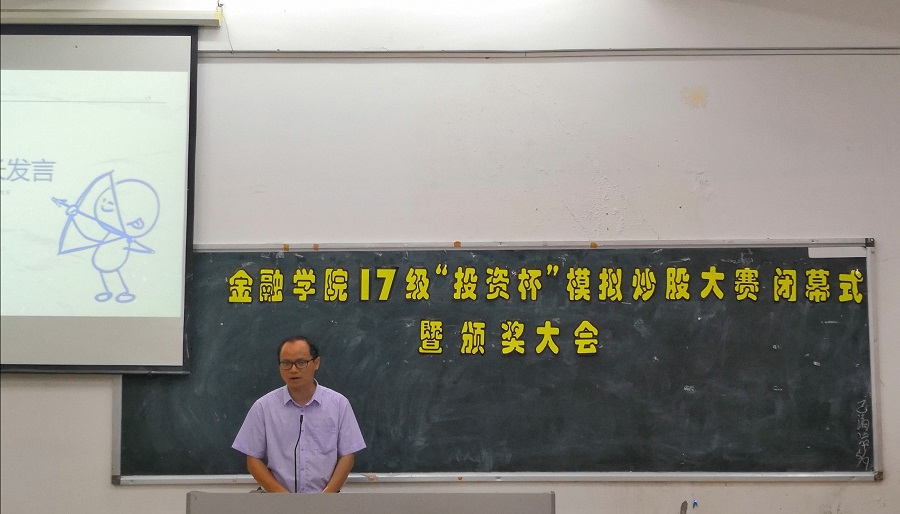 发言
金融学院17级“投资杯”模拟炒股大赛闭幕式
暨颁奖大会